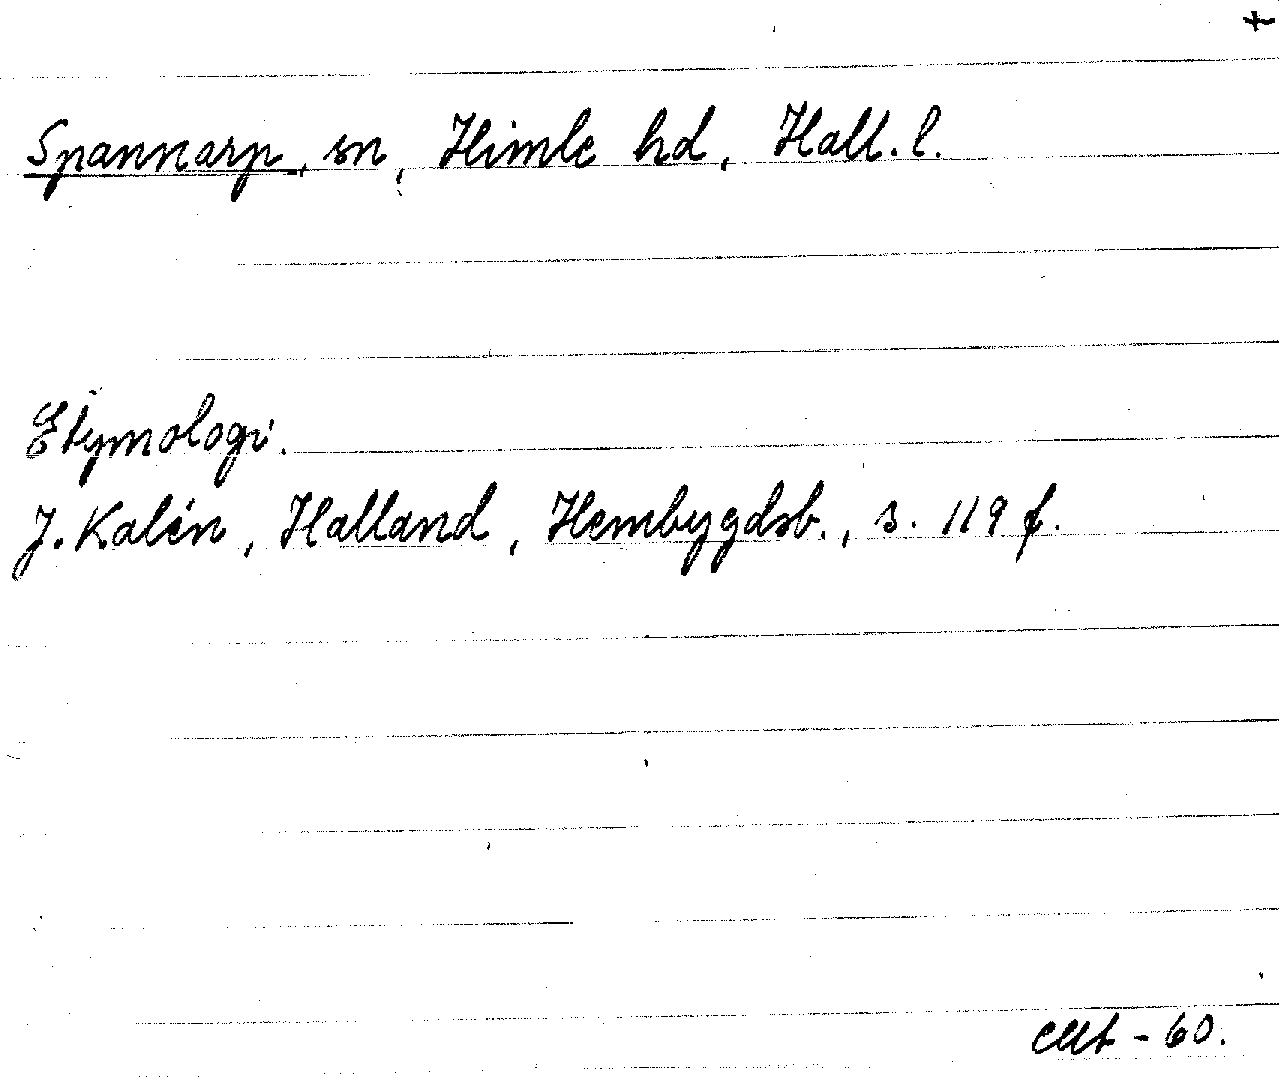 +
Spannarp, sn, Himle hd, Hall. l.
Etymologi.
J. Kalén, Halland, Hembygdsb., s. 119 f.
- 60.